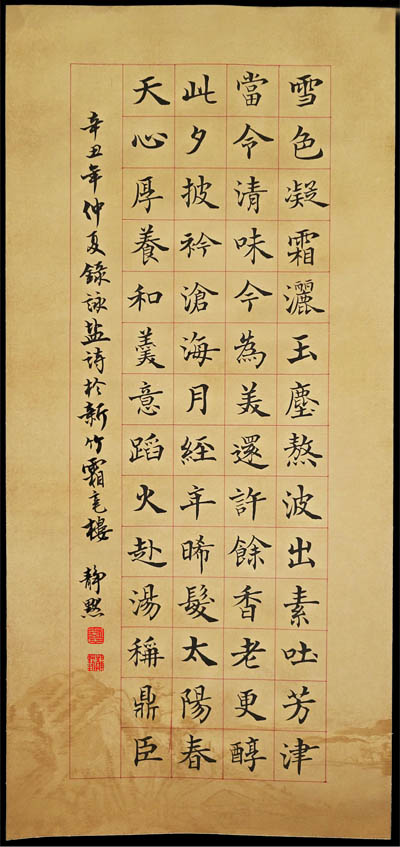 雪色凝霜灑玉塵熬波出素吐芳津
當令清味今為美還許餘香老更醇
此夕披衿滄海月經年晞髮太陽春
天心厚養和羹意蹈火赴湯稱鼎臣
辛丑年仲夏錄詠盐詩於新竹霜毫樓 靜默